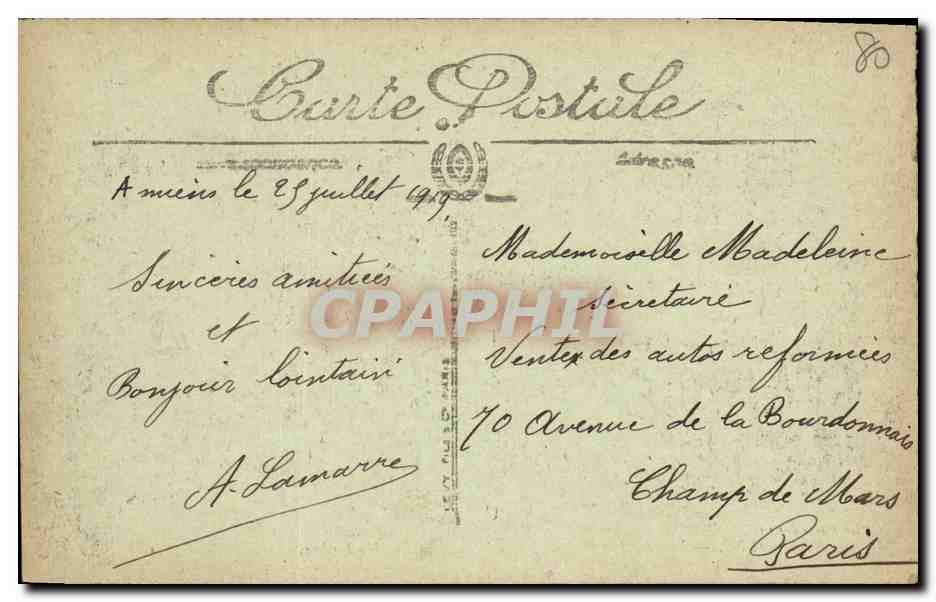 80
Carte Postale
CORRESPONDANCE
Adresse
Amiens le 25 juillet 1919,
Sincères amitiés
et
Bonjour lointain
A. Lamarre
Mademoiselle Madeleine
Sécretaire
Vente des autos reformées
70 Avenue de la Bourdonnais
Champ de Mars
Paris
CPAPHIL